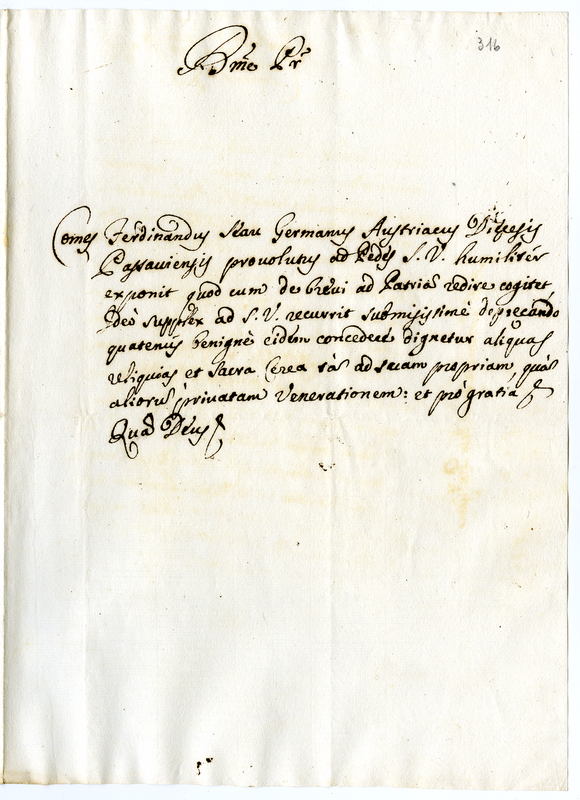 Bme Pr
316
Comes Ferdinandus Germanus Austriacus Diæcesis
Passaviensis provolutus ad Pedes S. V. humiliter
exponit quod cum de brevi ad Patriã redire cogitet,
Ideò supplex ad S. V. recurrit submisissimè deprecando
quatenus benignè eidem concedere dignetur aliquas
reliquias et Sacra Cerea tàs ad suam propriam, quàs
aliorũ privatam Venerationem: et prò gratia
Quã Deus